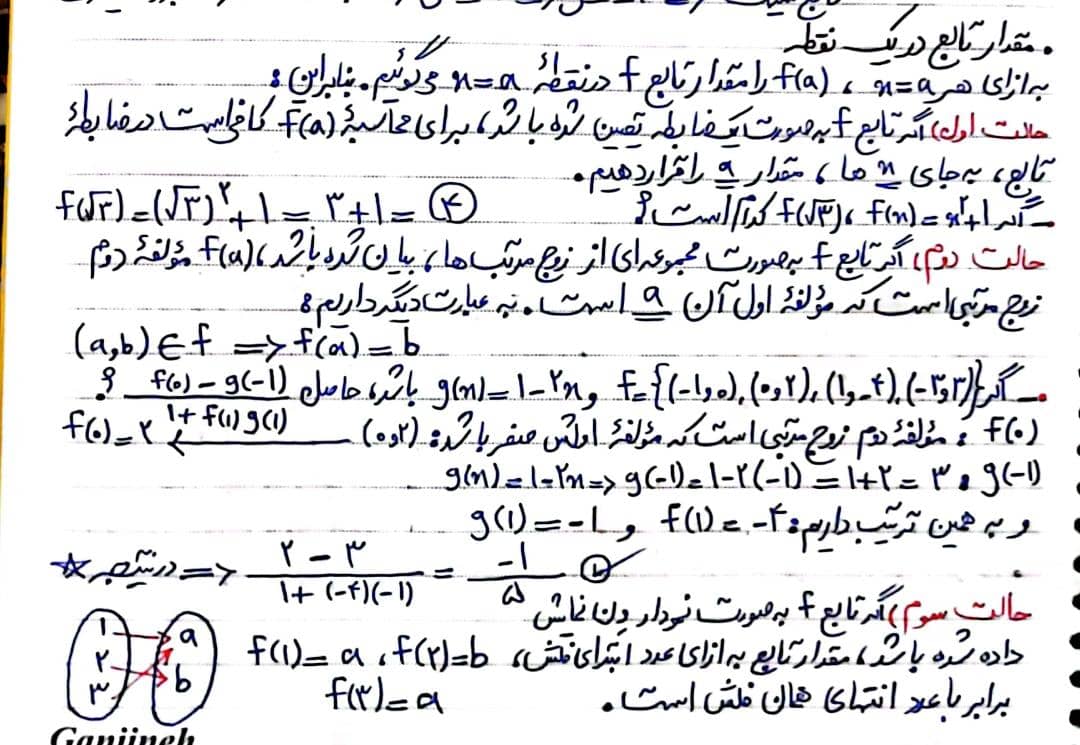 • مقدار تابع در یک نقطه
به ازای هر x=a ، f(a) را مقدار تابع f در نقطهٔ x=a می‌گوئیم. بنابراین :
حالت اول) اگر تابع f به صورت یک ضابطه تعیین شده باشد، برای محاسبهٔ f(a) کافی است در ضابطهٔ
تابع، به جای x ها، مقدار a را قرار دهیم.
ـ اگر f(x) = x²+1، f(√۳) کدام است؟ f(√۳) = (√۳)^۲ + ۱ = ۳+۱ = ۴
حالت دوم) اگر تابع f به صورت مجموعه‌ای از زوج مرتب‌ها، بیان شده باشد، f(a) مؤلفهٔ دوم
زوج مرتبی است که مؤلفهٔ اول آن a است. به عبارت دیگر داریم :
(a,b) ∈ f => f(a) = b
ـ اگر f={(-۱,۰), (۰,۲), (۱,-۴), (-۳,۳)} و g(x) = ۱-۲x باشد، حاصل (f(۰) - g(-۱)) / (۱ + f(۱) g(۱)) ؟
f(۰) : مؤلفهٔ دوم زوج مرتبی است که مؤلفهٔ اولش صفر باشد: (۰,۲) → f(۰) = ۲
g(-۱) : g(x) = ۱-۲x => g(-۱) = ۱-۲(-۱) = ۱+۲ = ۳
و به همین ترتیب داریم: f(۱) = -۴ و g(۱) = -۱
☆ در نتیجه => (۲ - ۳) / (۱ + (-۴)(-۱)) = -۱ / ۵
حالت سوم) اگر تابع f به صورت نمودار ون نمایش
داده شده باشد، مقدار تابع به ازای عدد ابتدای فلش، f(۱) = a ، f(۲) = b
برابر با عدد انتهای همان فلش است. f(۳) = a
۱ a
۲ b
۳
Ganjineh